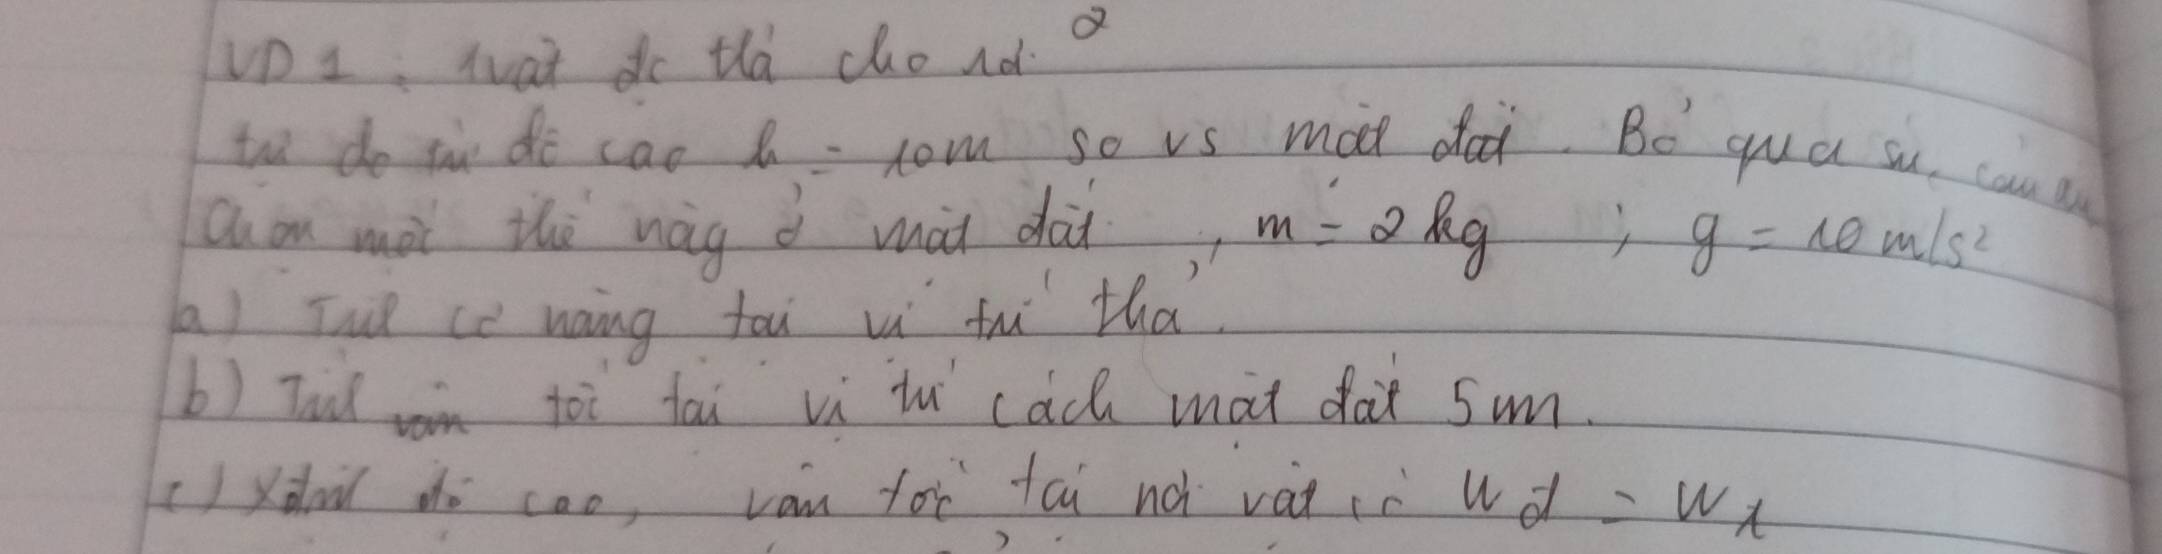 VD1: 1 vật đc thả cho rơi
tự do từ độ cao h = 10m so vs mặt đất. Bỏ qua sức cản
Chọn mốc thế năng ở mặt đất, m = 2 kg ; g = 10 m/s²
a) Tính cơ năng tại vị trí thả.
b) Tính vận tốc tại vị trí cách mặt đất 5m.
c) Xđịnh độ cao, vận tốc tại nơi vật có Wđ = Wt